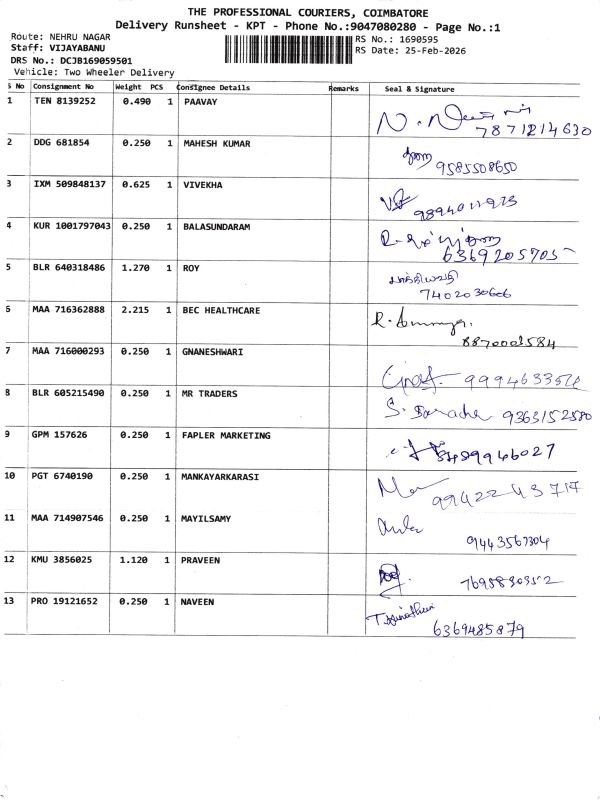 THE PROFESSIONAL COURIERS, COIMBATORE
Delivery Runsheet - KPT - Phone No.:9047080280 - Page No.:1
Route: NEHRU NAGAR
RS No.: 1690595
Staff: VIJAYABANU
RS Date: 25-Feb-2026
DRS No.: DCJB169059501
Vehicle: Two Wheeler Delivery
S No Consignment No Weight PCS Consignee Details Remarks Seal & Signature
1 TEN 8139252 0.490 1 PAAVAY
7871214630
2 DDG 681854 0.250 1 MAHESH KUMAR
9585508650
3 IXM 509848137 0.625 1 VIVEKHA
4 KUR 1001797043 0.250 1 BALASUNDARAM
6369205705
5 BLR 640318486 1.270 1 ROY
7402030606
6 MAA 716362888 2.215 1 BEC HEALTHCARE
8870003584
7 MAA 716000293 0.250 1 GNANESHWARI
8 BLR 605215490 0.250 1 MR TRADERS
9363152580
9 GPM 157626 0.250 1 FAPLER MARKETING
10 PGT 6740190 0.250 1 MANKAYARKARASI
11 MAA 714907546 0.250 1 MAYILSAMY
9443567304
12 KMU 3856025 1.120 1 PRAVEEN
7695830352
13 PRO 19121652 0.250 1 NAVEEN
6369485879